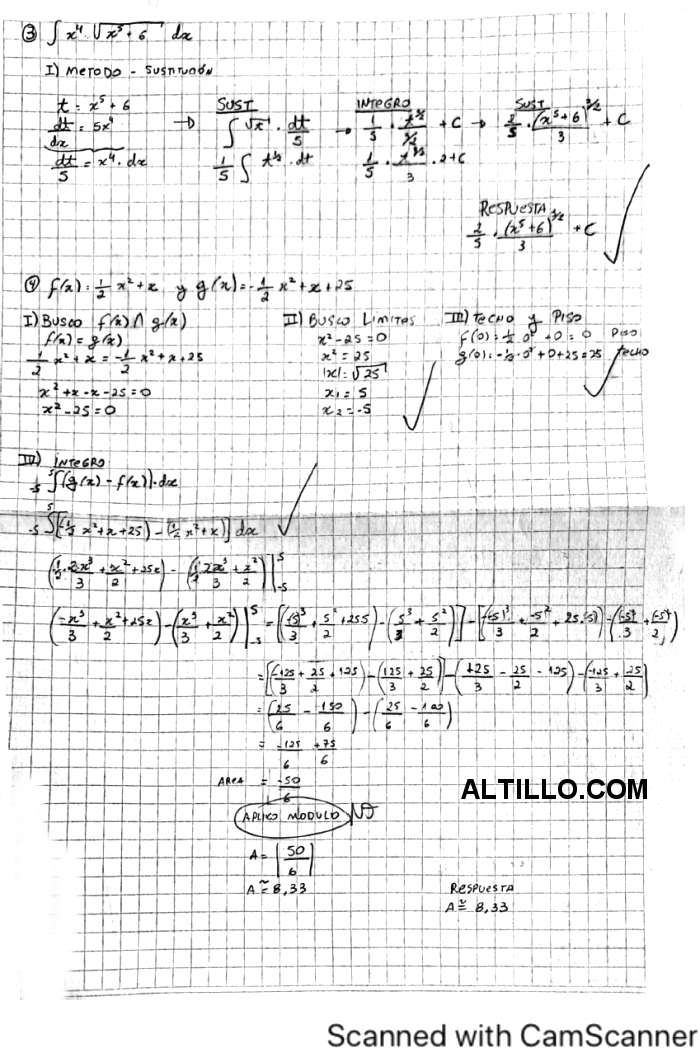 ③ ∫ x⁴ · √(x⁵ + 6) dx
I) METODO - SUSTITUCIÓN
t = x⁵ + 6
dt/dx = 5x⁴
dt/5 = x⁴ · dx
→ SUST
∫ √x · dt/5
1/5 ∫ t^½ · dt
→ INTEGRO
1/5 · t^(3/2) / (3/2) + C
1/5 · t^(3/2) / 3 · 2 + C
→ SUST
2/5 · (x⁵+6)^(3/2) / 3 + C
RESPUESTA
2/5 · (x⁵+6)^(3/2) / 3 + C
④ f(x) = 1/2 x² + x y g(x) = -1/2 x² + x + 25
I) BUSCO f(x) ∩ g(x)
f(x) = g(x)
1/2 x² + x = -1/2 x² + x + 25
x² + x - x - 25 = 0
x² - 25 = 0
II) BUSCO LIMITES
x² - 25 = 0
x² = 25
|x| = √25
x₁ = 5
x₂ = -5
III) TECHO y PISO
f(0) = ½ · 0² + 0 = 0 PISO
g(0) = -½ · 0² + 0 + 25 = 25 TECHO
IV) INTEGRO
-5 ∫ 5 [g(x) - f(x)] · dx
-5 ∫ 5 [(-½ x² + x + 25) - (½ x² + x)] dx
+ x²/2 + 25x) -
+ x²/2) |5 -5
(-x³/3 + x²/2 + 25x) - (x³/3 + x²/2) |5 -5 = [(-(5)³/3 + 5²/2 + 25·5) - (5³/3 + 5²/2)] - [(-(-5)³/3 + -5²/2 + 25·(-5)) - ((-5)³/3 + (-5)²/2)]
= [(-125/3 + 25/2 + 125) - (125/3 + 25/2)] - (+125/3 - 25/2 - 125) - (-125/3 + 25/2)
= (25/6 - 150/6) - (25/6 - 100/6)
= -125/6 + 75/6
AREA = -50/6
APLICO MODULO NO
A = |50/6|
A ≅ 8,33
RESPUESTA
A ≅ 8,33
ALTILLO.COM
Scanned with CamScanner